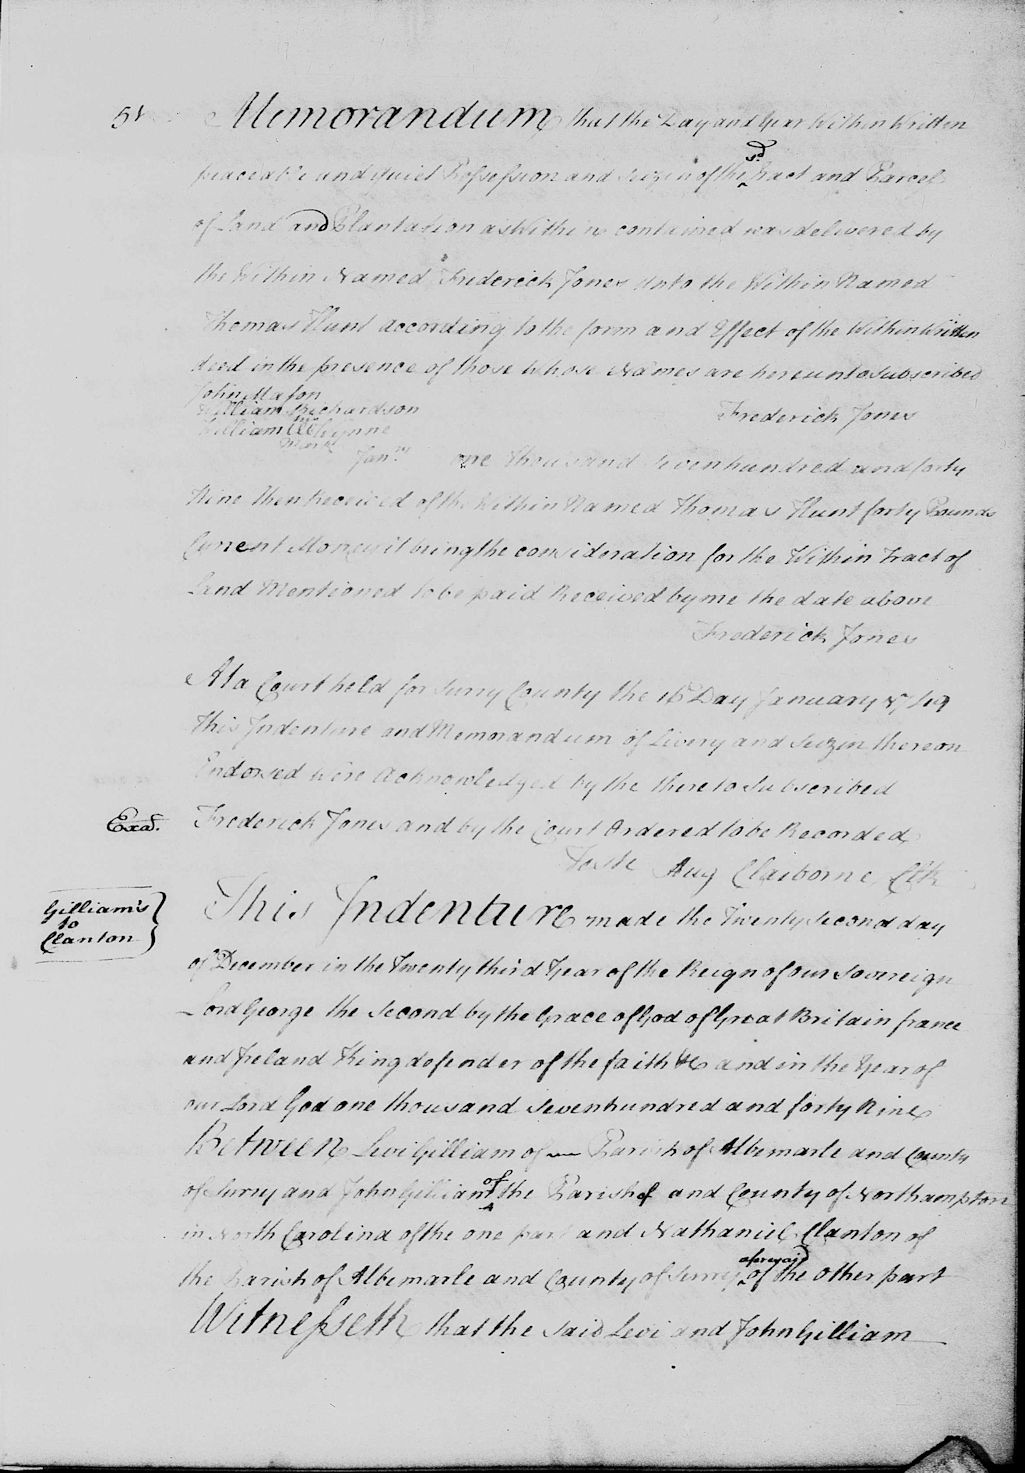 Memorandum that the Day and Year Within Written
peaceable and quiet Possession and Seizin of the sd Tract and Parcel
of Land and Plantation as Within contained was delivered by
the Within Named Frederick Jones unto the Within Named
Thomas Hunt according to the form and Effect of the Within Written
deed in the presence of those whose Names are hereunto subscribed
John Mason
William Richardson
Frederick Jones
William Wynne
Mark
Janry one thousand Sevenhundred and forty
Nine then Received of the Within Named Thomas Hunt forty Pounds
Current Money it being the consideration for the Within Tract of
Land Mentioned to be paid Received by me the date above
Frederick Jones
At a Court held for Surry County the 16 Day January
this Indenture and Memorandum of Livery and Seizin thereon
Endorsed were Acknowledged by the thereto Subscribed
Exd. Frederick Jones and by the Court Ordered to be Recorded
Teste Aug Claiborne Clk
Gilliam's
to
Clanton
This Indenture made the Twenty Second day
of December in the Twenty third Year of the Reign of our Sovereign
Lord George the Second by the Grace of God of Great Britain france
and Ireland King defender of the faith &c and in the Year of
our Lord God one thousand Sevenhundred and forty Nine
Between Levi Gilliam of Parish of Albemarle and County
of Surry and John Gilliam of the Parish of and County of Northampton
in North Carolina of the one part and Nathaniel Clanton of
the Parish of Albemarle and County of Surry aforesaid of the other part
Witnesseth that the said Levi and John Gilliam